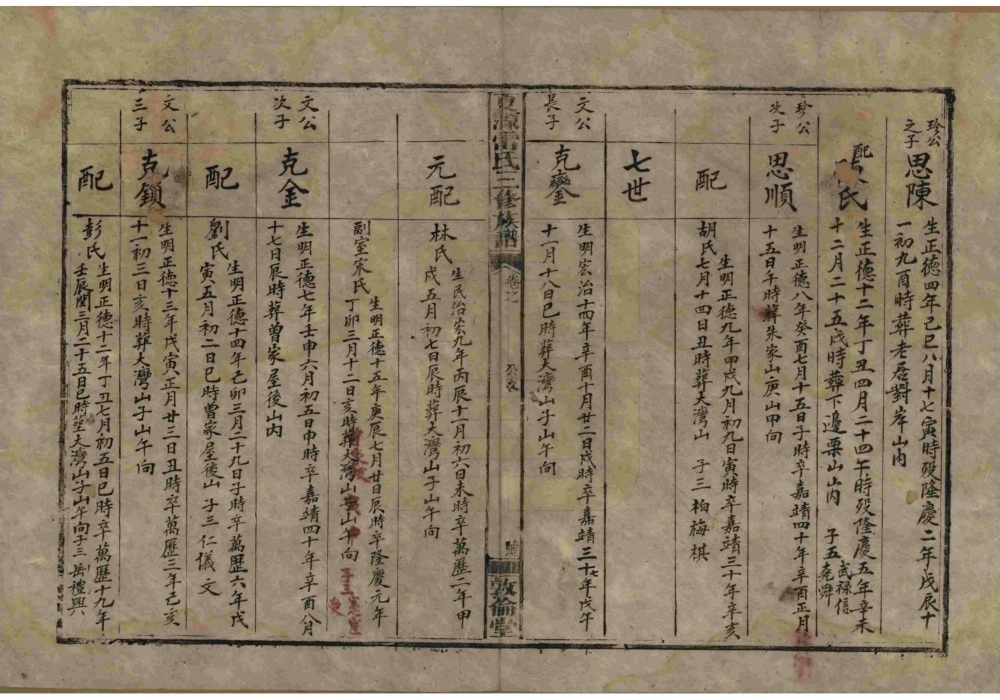 珍公之子
思陳
生正德四年己巳八月十七寅時殁隆慶二年戊辰十
一初九酉時葬老居對岸山內
配 氏
生正德十二年丁丑四月二十四午時殁隆慶五年辛未
十二月二十五戌時葬下邊栗山山內 子五 武祿信堯舜
珍公次子
思順
生明正德八年癸酉七月十五日子時卒嘉靖四十年辛酉正月
十五日午時葬朱家山庚山甲向
配
胡氏
生明正德九年甲戌九月初九日寅時卒嘉靖三十年辛亥
七月十四日丑時葬大灣山 子三 柏梅棋
七世
文公長子
克鑾
生明宏治十四年辛酉十月廿二日戌時卒嘉靖三十七年戊午
十一月十八日巳時葬大灣山子山午向
東源雷氏三修族譜
卷之
敦倫堂
元配
林氏
生民治宏九年丙辰十二月初六日未時卒萬歷二年甲
戌五月初七日辰時葬大灣山子山午向
副室宋氏
生明正德十五年庚辰七月廿日辰時卒隆慶元年
丁卯三月十二日亥時葬大灣山 山午向
子三
文公次子
克金
生明正德七年壬申六月初五日申時卒嘉靖四十年辛酉八月
十七日辰時葬曾家屋後山內
配
劉氏
生明正德十四年己卯三月二十九日子時卒萬歷六年戊
寅五月初二日巳時曾家屋後山 子三 仁儀文
文公三子
克鎖
生明正德十三年戊寅正月廿三日丑時卒萬歷三年乙亥
十一初三日亥時葬大灣山子山午向
配
彭氏
生明正德十二年丁丑七月初五日巳時卒萬歷十九年
壬辰閏三月二十五日巳時塟大灣山子山午向子三岳禮興